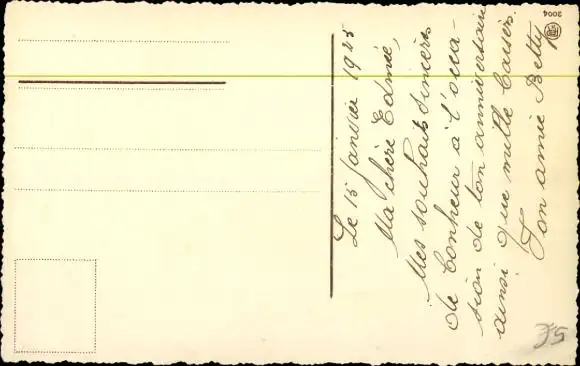 Le 15 Janvier 1945
Ma chère Edmée,
Mes souhaits sincères
de bonheur à l'occa-
sion de ton anniversaire
ainsi que mille baisers.
Ton amie Betty
2004
35